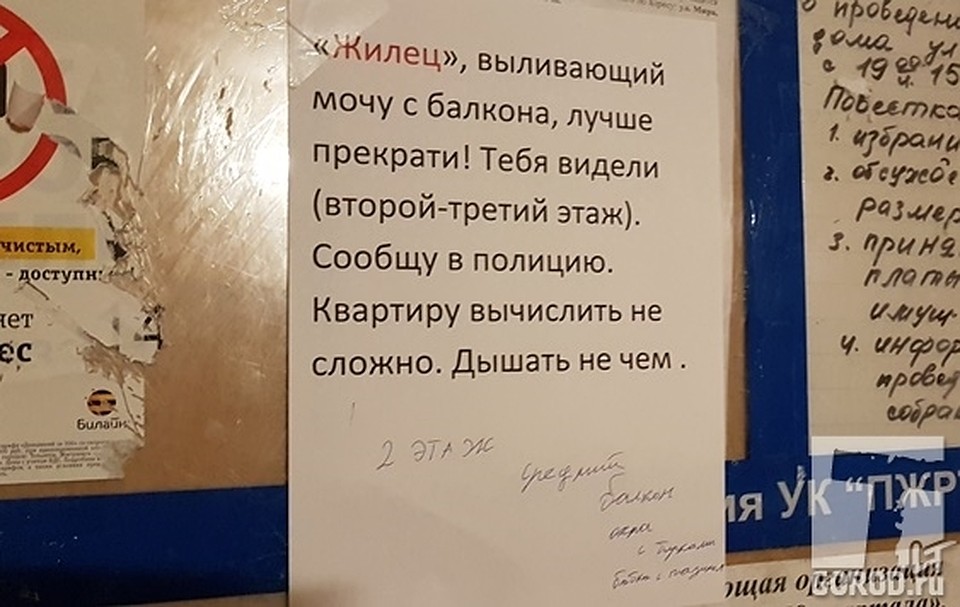 чистым,
- доступн
нет
ес
Билайн
«Жилец», выливающий
мочу с балкона, лучше
прекрати! Тебя видели
(второй-третий этаж).
Сообщу в полицию.
Квартиру вычислить не
сложно. Дышать не чем .
2 ЭТАЖ
средний
балкон
окна
с
о проведени
дома ул
с 19 00 ч. 15
Повестка
1. избрани
2. обсужде
размер
3. приня
платы
имущ
4. инфор
провед
собран
ия УК "ПЖРТ
ющая организация
GOROD.ru